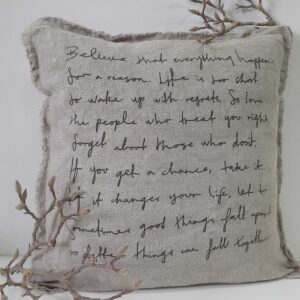 Believe that everything happen
for a reason. Life is too short
to wake up with regrets. So love
the people who treat you right,
forget about those who don't.
If you get a chance, take it.
If it changes your life, let it
sometimes good things fall apart
so better things can fall together